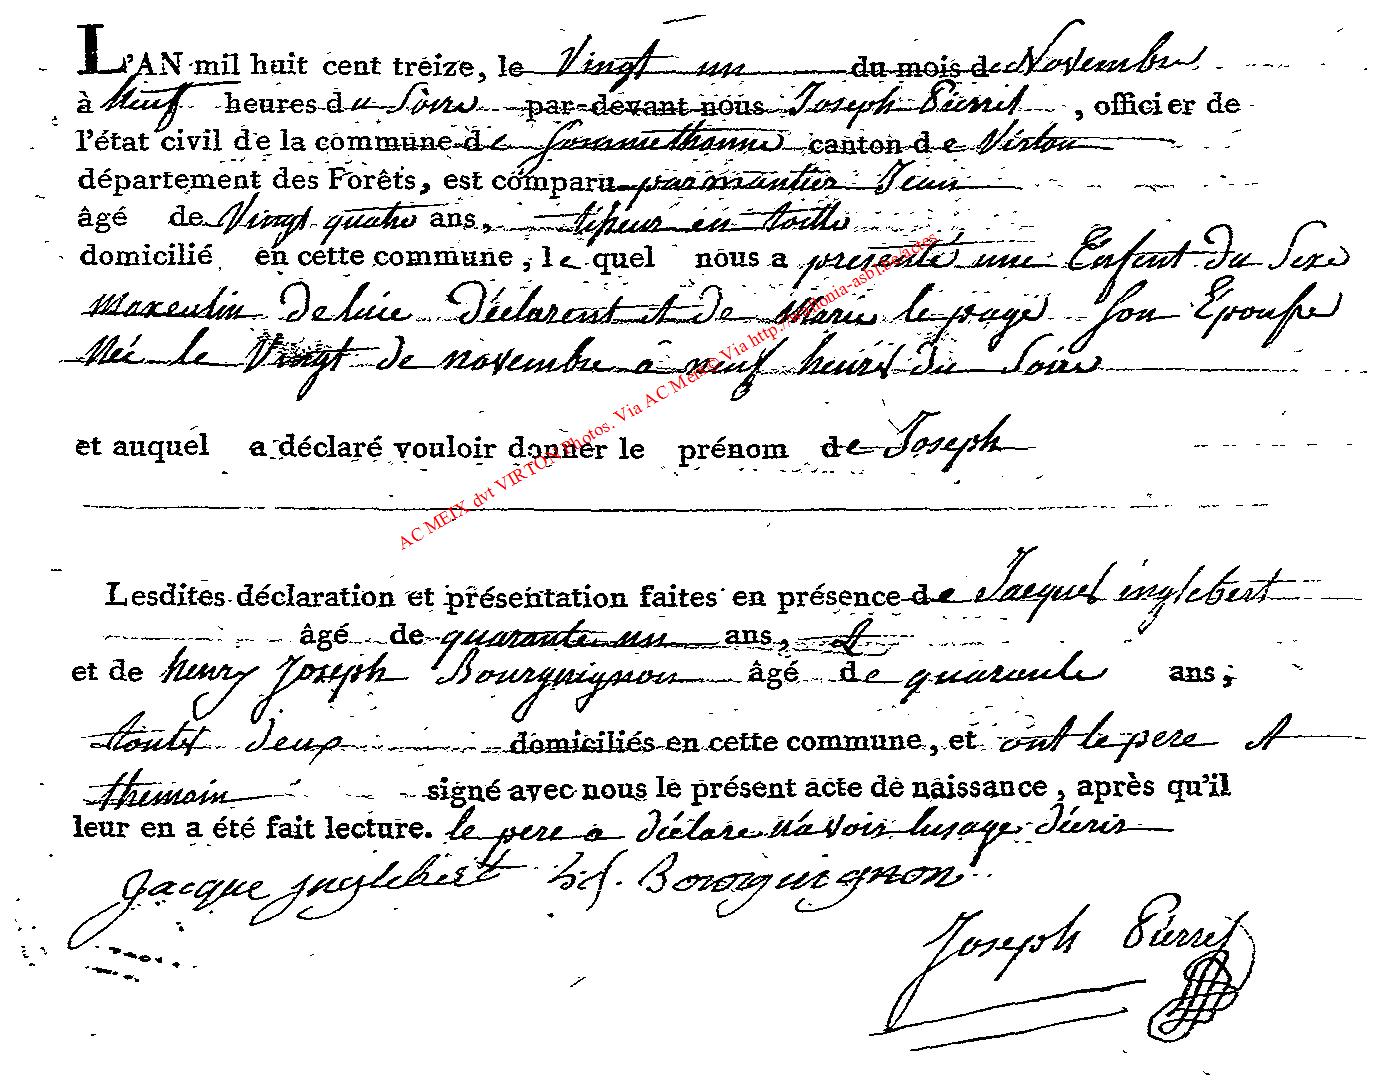 L'AN mil huit cent treize, le Vingt un du mois de Novembre
à Neuf heures du Soire par-devant nous Joseph Pierret, officier de
l'état civil de la commune de Sommethonne canton de Virton
département des Forêts, est comparu parmantier Jean
âgé de Vingt quatre ans, tiseur en toille
domicilié en cette commune, le quel nous a presenté une Enfent du Sexe
maxculin de luie déclarent et de Marie le page Son Epousse
Néé le Vingt de novembre a neuf heures du Soire
et auquel a déclaré vouloir donner le prénom de Joseph
Lesdites déclaration et présentation faites en présence de Jacques inglebert
âgé de quarante un ans, &
et de henry Joseph Bourguignon âgé de quarante ans;
toutes deux domiciliés en cette commune, et ont le pere et
themoin signé avec nous le présent acte de naissance, après qu'il
leur en a été fait lecture. le pere a déclare n'avoir lusage décrir
Jacque jnglebert h j. Bourguignon
Joseph Pierret
AC MEIX dvt VIRTON Photos. Via AC Meix© Via